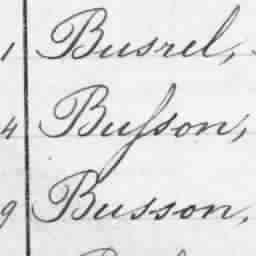 1 Busrel,
4 Buſson,
9 Busson,